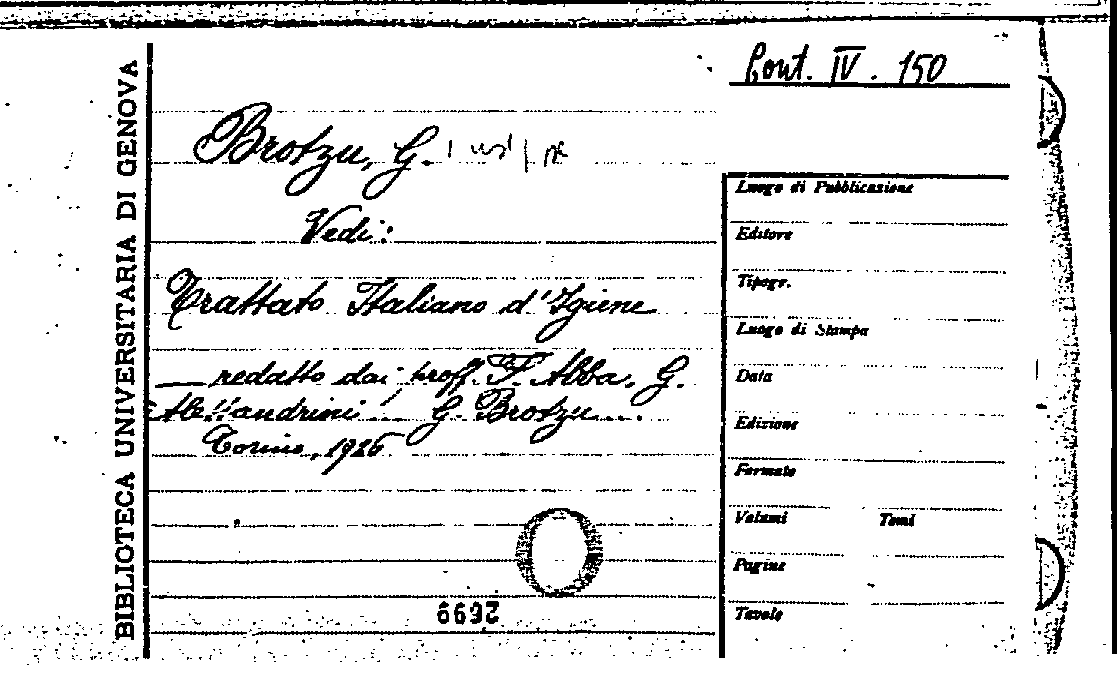 BIBLIOTECA UNIVERSITARIA DI GENOVA
Cont. IV. 150
Brotzu, G.
Vedi:
Trattato Italiano d'Igiene
— redatto dai proff. F. Abba, G.
Alessandrini, G. Brotzu...
Torino, 1926
2699
Luogo di Pubblicazione
Editore
Tipogr.
Luogo di Stampa
Data
Edizione
Formato
Volumi Tomi
Pagine
Tavole